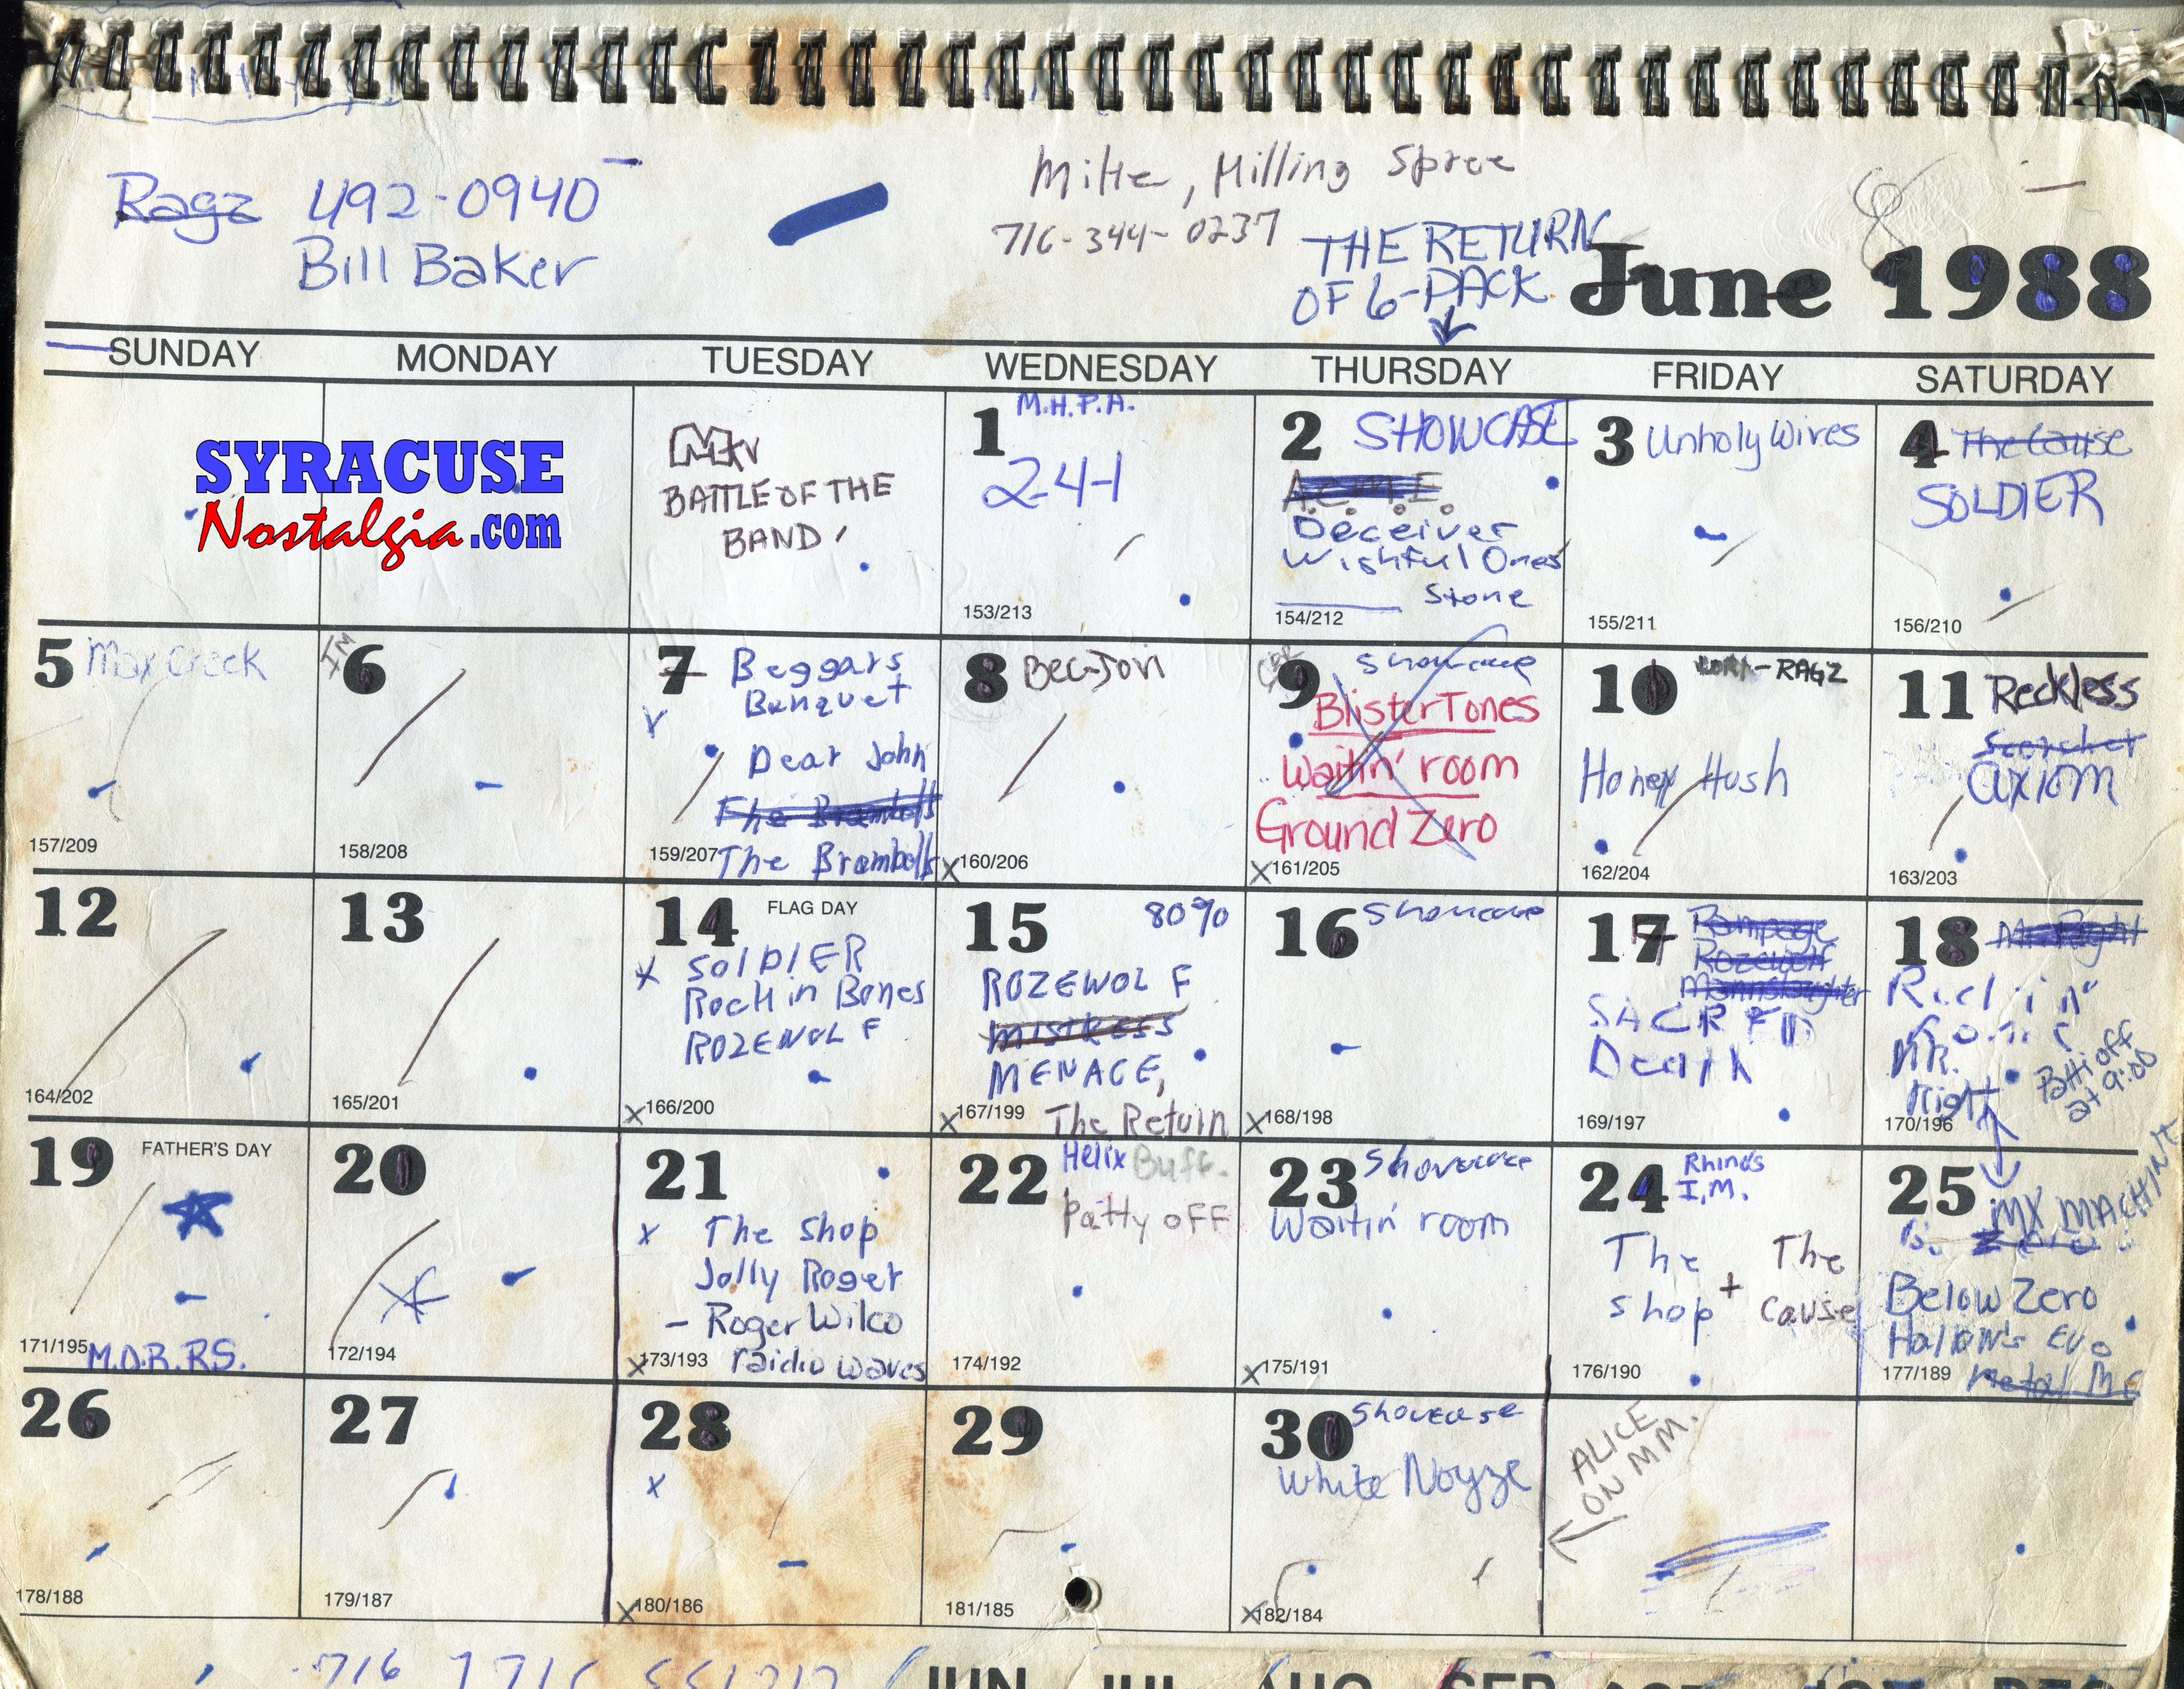 Ragz 492-0940
Bill Baker
Mike, Killing Spree
716-344-0237
THE RETURN
OF 6-PACK
June 1988
SUNDAY MONDAY TUESDAY WEDNESDAY THURSDAY FRIDAY SATURDAY
SYRACUSE
Nostalgia.com
MTV
BATTLE OF THE
BAND
1 M.H.P.A.
2-4-1
153/213
2 SHOWCASE
A.C.M.E.
Deceiver
Wishful Ones
Stone
154/212
3 Unholy Wives
155/211
4 The Cause
SOLDIER
156/210
5 Max Creek
157/209
IM
6
158/208
7 Beggars
Banquet
Dear John
The Brambells
The Brambells
159/207
8 Bec-Jovi
160/206
9 Showcase
BlisterTones
Waitin' room
Ground Zero
161/205
10 RAGZ
Honey Hush
162/204
11 Reckless
Scorcher
axiom
163/203
12
164/202
13
165/201
14 FLAG DAY
SOLDIER
Rockin Bones
ROZEWOLF
166/200
15 80%
ROZEWOLF
MISTRESS
MENACE,
The Return
167/199
16 Showcase
168/198
17 Rampage
Rozewolf
Mannslaughter
SACRED
Death
169/197
18 Mr. Right
Mr.
Right
Patti off
at 9:00
170/196
19 FATHER'S DAY
171/195
M.O.B.R.S.
20
172/194
21
The Shop
Jolly Roger
- Roger Wilco
raidio waves
173/193
22 Helix Buff.
Patty off
174/192
23 Showcase
Waitin' room
175/191
24 Rhino's
I.M.
The Shop + The Cause
176/190
25
MX MACHINE
Below Zero
Hallow's Eve
177/189
26
178/188
27
179/187
28
180/186
29
181/185
30 Showcase
White Noyze
182/184
ALICE
ON MM.
716
JUN JUL AUG SEP